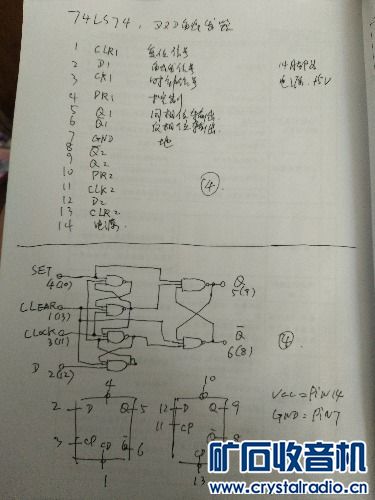 74LS74, 双D触发器
1 CLR1 复位信号
2 D1 触发信号
3 CK1 时钟信号
4 PR1 控制
5 Q1 同相位输出
6 Q̅1 反相位输出
7 GND 地
8 Q̅2
9 Q2
10 PR2
11 CLK2
12 D2
13 CLR2
14 电源
14
电源 +5V
④
SET
4(10)
CLEAR
1(13)
CLOCK
3(11)
D
2(12)
Q
5(9)
Q̅
6(8)
④
4
2 D Q 5
3 CP Q̅ 6
CD
1
10
12 D Q 9
11 CP
Q̅ 8
13
VCC = PIN14
GND = PIN7
矿石收音机
www.crystalradio.cn